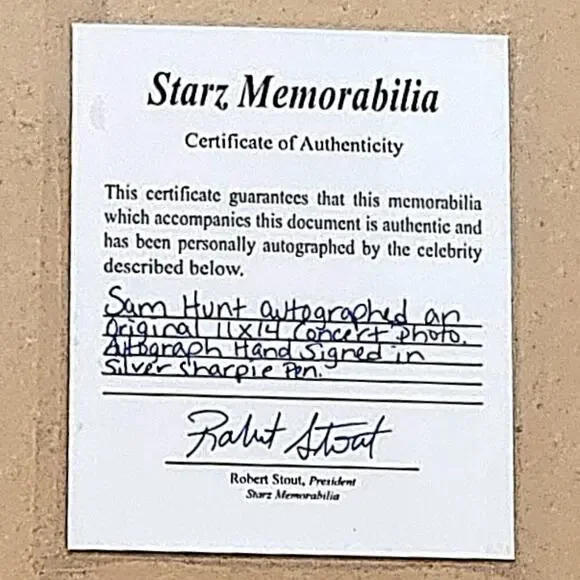 Starz Memorabilia
Certificate of Authenticity
This certificate guarantees that this memorabilia
which accompanies this document is authentic and
has been personally autographed by the celebrity
described below.
Sam Hunt autographed an
Original 11x14 Concert photo.
Autograph Hand Signed in
Silver Sharpie Pen.
Robert Stout
Robert Stout, President
Starz Memorabilia